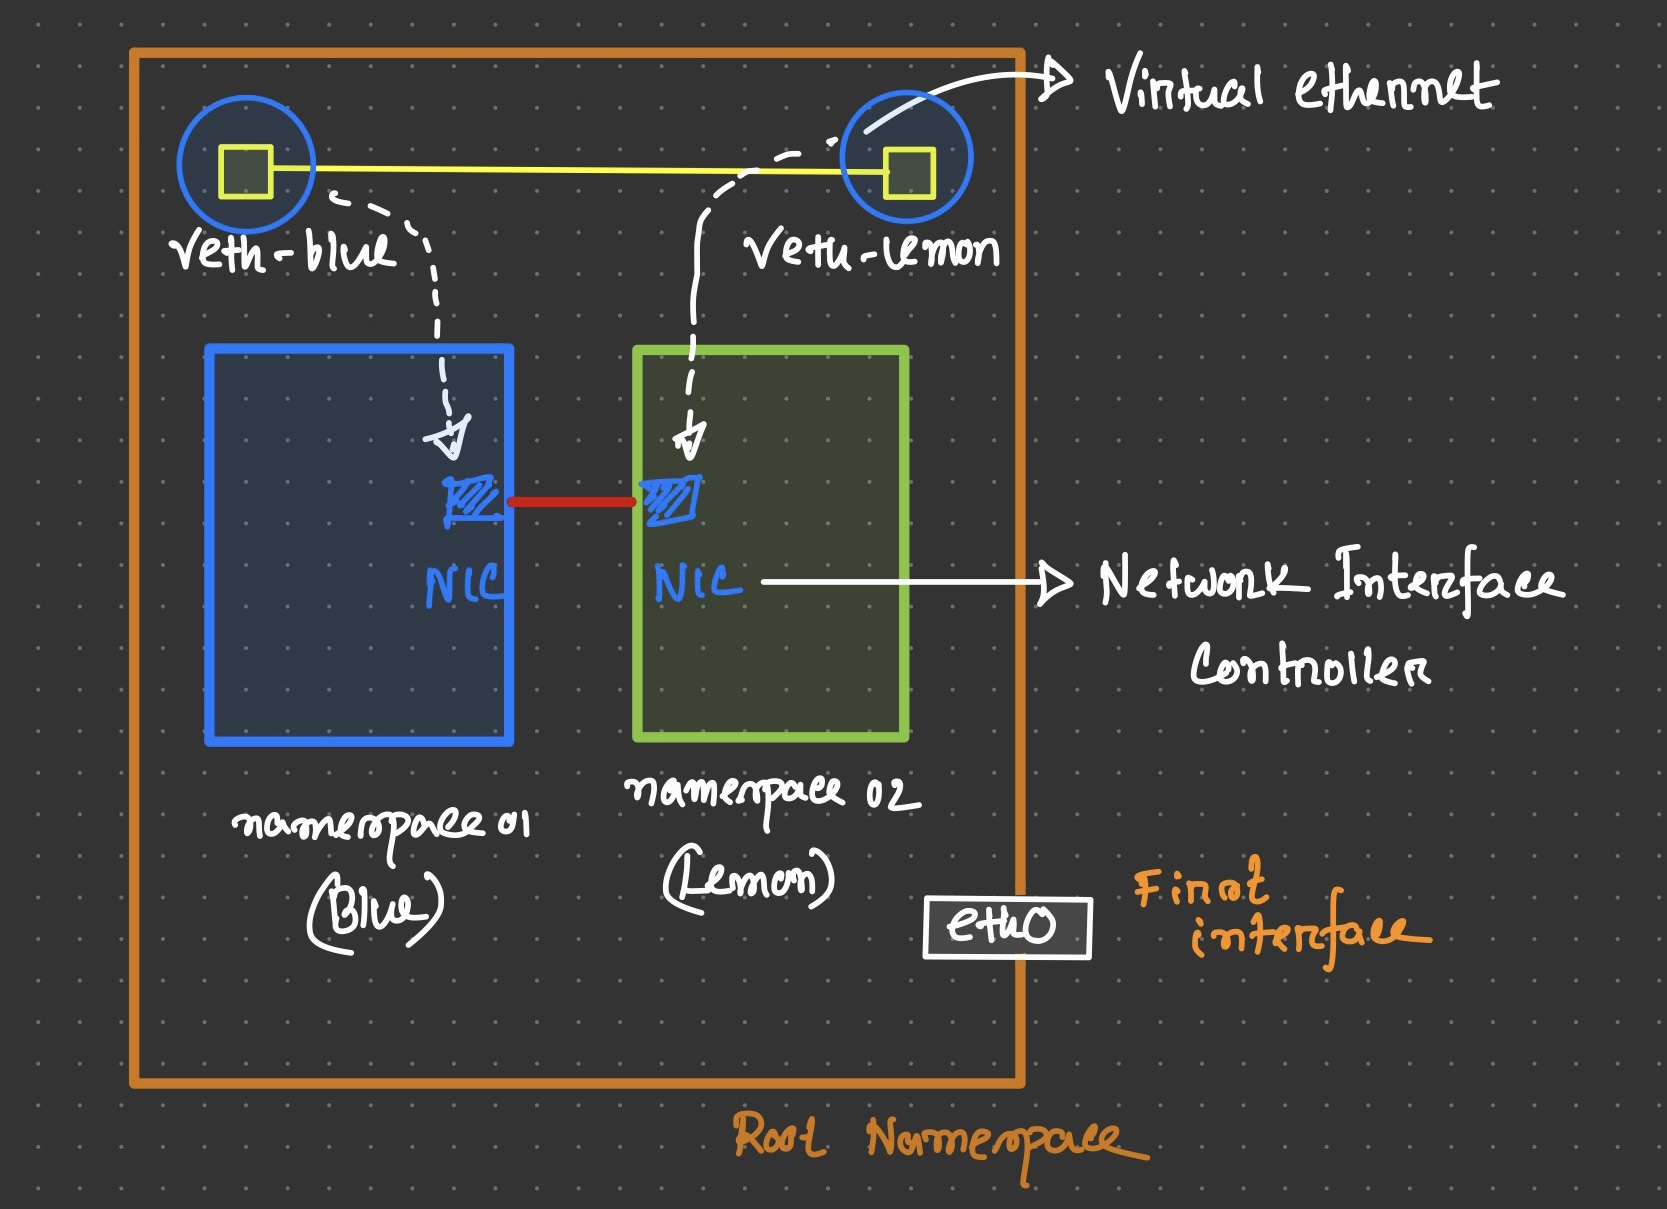 Virtual ethernet
veth-blue
veth-lemon
NIC
NIC
Network Interface
Controller
namespace 01
(Blue)
namespace 02
(Lemon)
eth0
First
interface
Root Namespace